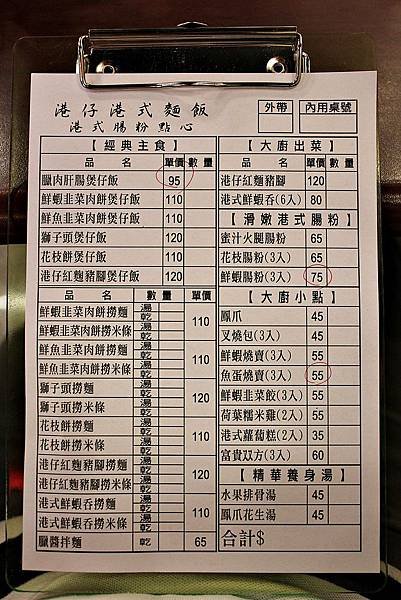 港仔港式麵飯
港式腸粉點心
外帶 內用桌號
【經典主食】
品名 單價 數量
臘肉肝腸煲仔飯 95
鮮蝦韭菜肉餅煲仔飯 110
鮮魚韭菜肉餅煲仔飯 110
獅子頭煲仔飯 120
花枝餅煲仔飯 110
港仔紅麴豬腳煲仔飯 120
品名 數量 單價
鮮蝦韭菜肉餅撈麵 湯 乾
鮮蝦韭菜肉餅撈米條 湯 乾
110
鮮魚韭菜肉餅撈麵 湯 乾
鮮魚韭菜肉餅撈米條 湯 乾
110
獅子頭撈麵 湯 乾
獅子頭撈米條 湯 乾
120
花枝餅撈麵 湯 乾
花枝餅撈米條 湯 乾
110
港仔紅麴豬腳撈麵 湯 乾
港仔紅麴豬腳撈米條 湯 乾
120
港式鮮蝦吞撈麵 湯 乾
港式鮮蝦吞撈米條 湯 乾
110
臘醬拌麵 乾 65
【大廚出菜】
品名 單價 數量
港仔紅麴豬腳 120
港式鮮蝦吞(6入) 80
【滑嫩港式腸粉】
蜜汁火腿腸粉 65
花枝腸粉(3入) 65
鮮蝦腸粉(3入) 75
【大廚小點】
鳳爪 45
叉燒包(3入) 45
鮮蝦燒賣(3入) 55
魚蛋燒賣(3入) 55
鮮蝦韭菜餃(3入) 55
荷葉糯米雞(2入) 55
港式蘿蔔糕(2入) 35
富貴双方(3入) 60
【精華養身湯】
水果排骨湯 45
鳳爪花生湯 45
合計$